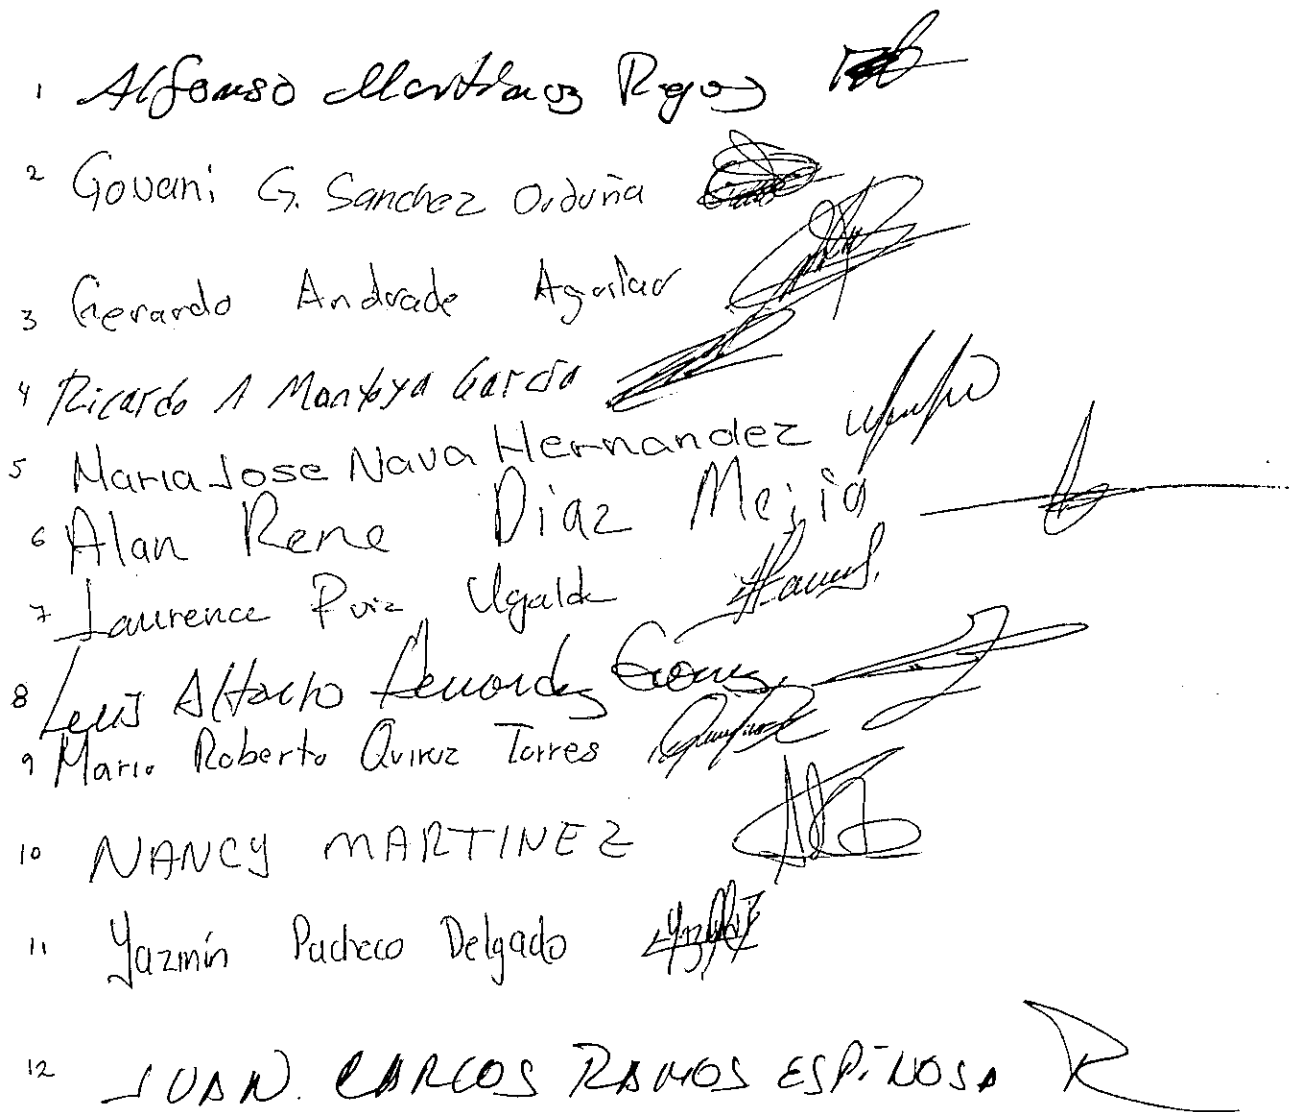 1 Alfonso Martinez Reyes
2 Govani G. Sanchez Orduña
3 Gerardo Andrade Aguilar
4 Ricardo A Montoya García
5 Maria Jose Nava Hernandez
6 Alan Rene Diaz Mejia
7 Laurence Ruiz Ugalde
8 Luis Alberto Hernandez Gomez
9 Mario Roberto Quiroz Torres
10 NANCY MARTINEZ
11 Yazmín Pacheco Delgado
12 JUAN. CARLOS RAMOS ESPINOSA